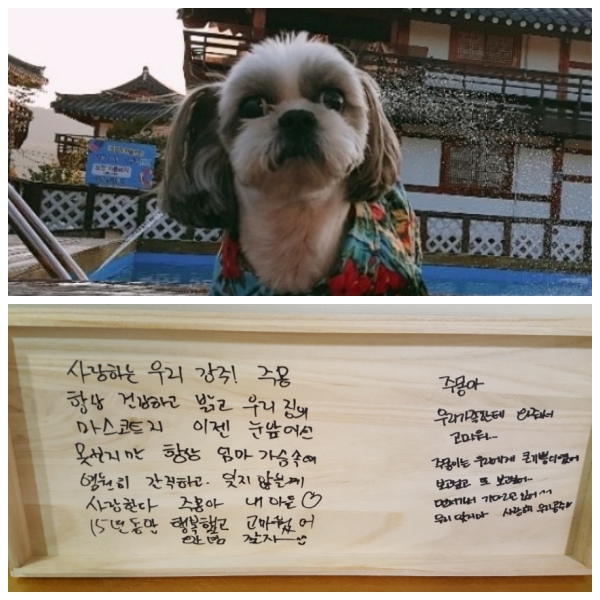 사랑하는 우리 강쥐! 주몽
항상 건강하고 밝고 우리 집의
마스코트지 이젠 눈앞에선
못보지만 항상 엄마 가슴속에
영원히 간직하고. 잊지않을께
사랑한다 주몽아 내 아들♡
15년동안 행복했고 고마웠어
잘자
주몽아
우리가족한테 와줘서
고마워..
주몽이는 우리에게 큰기쁨이였어
보고싶고 또 보고싶어..
기다리고 있어~~
우리 사랑해